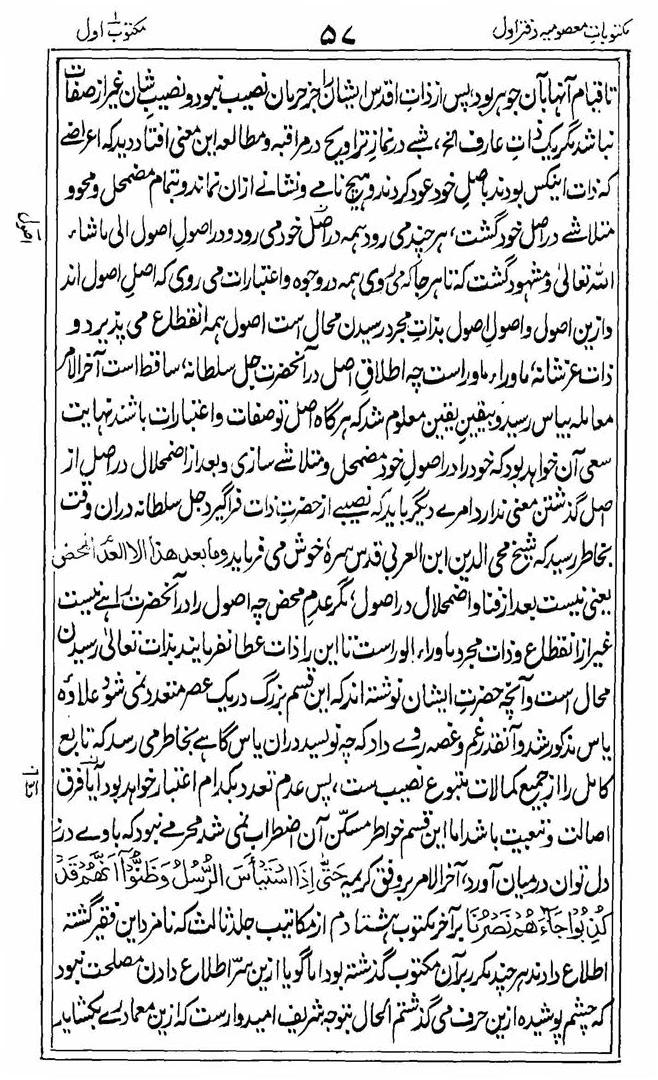 مکتوبات معصومیہ دفتر اول
۵۷
مکتوب ۱ اول
تا قیام آنہا بآن جوہر بود، پس از ذات اقدس ایشان را جز حرمان نصیب نبود و نصیب شان غیر از صفات
نباشد مگر یک ذات عارف الخ، شبے در نماز تراویح در مراقبہ و مطالعہ این معنی افتاد دید کہ اعراضے
کہ ذات اینکس بودند باصل خود عود کردند و ہیچ نامے و نشانے ازان نماند و بتمام مضمحل و محو و
متلاشے در اصل خود گشت، ہر چند می رود ہمہ در اصل خود می رود و در اصول اصول الی ما شاء
اللہ تعالیٰ و مشہود گشت کہ تا ہر جا کہ می روی ہمہ در وجوہ و اعتبارات می روی کہ اصل اصول اند
و ازین اصول و اصول اصول بذات مجرد رسیدن محال ست اصول ہمہ انقطاع می پذیرد و
ذات عز شانہ، ماوراء ماوراست چہ اطلاق اصل در آنحضرت جل سلطانہ، ساقط است آخر الامر
معاملہ بیاس رسید و بیقین یقین معلوم شد کہ ہر گاہ اصل تو صفات و اعتبارات باشند نہایت
سعی آن خواہد بود کہ خود را در اصول خود مضمحل و متلاشے سازی و بعد از اضمحلال در اصل از
اصل گذشتن معنی ندارد امرے دیگر باید کہ نصیبے از حضرت ذات فرا گیرد جل سلطانہ دران وقت
بخاطر رسید کہ شیخ محی الدین ابن العربی قدس سرہ خوش می فرماید و ما بعد هذا الا العدم المحض
یعنی نیست بعد از فنا و اضمحلال در اصول، مگر عدم محض چہ اصول را در آنحضرت راہے نیست
غیر از انقطاع و ذات مجرد ماوراء الوراست تا این را ذات عطا نفرمایند بذات تعالی رسیدن
محال است و آنچہ حضرت ایشان نوشتہ اند کہ این قسم بزرگ در یک عصر متعدد نمی شود علاوہ
یاس مذکور شد و آنقدر غم و غصہ روے داد کہ چہ نویسد دران یاس گاہے بخاطر می رسد کہ تابع
کامل را از جمیع کمالات متبوع نصیب ست، پس عدم تعدد بکدام اعتبار خواہد بود آیا فرق
اصالت و تبعیت باشد اما این قسم خواطر مسکن آن اضطراب نمی شد محرمے نبود کہ باوے درد
دل توان درمیان آورد، آخر الامر بر وفق کریمہ حَتّٰی إِذَا اسْتَيْأَسَ الرُّسُلُ وَظَنُّوا أَنَّهُمْ قَدْ
كُذِبُوا جَاءَهُمْ نَصْرُنَا بر آخر مکتوب ہشتادم از مکاتیب جلد ثالث کہ نامزد این فقیر گشتہ
اطلاع دادند ہر چند مکرر بر آن مکتوب گذشتہ بود اما گویا ازین سر اطلاع دادن مصلحت نبود
کہ چشم پوشیدہ ازین حرف می گذشتم الحال بتوجہ شریف امیدوارست کہ ازین معما درے بکشایند
اصول